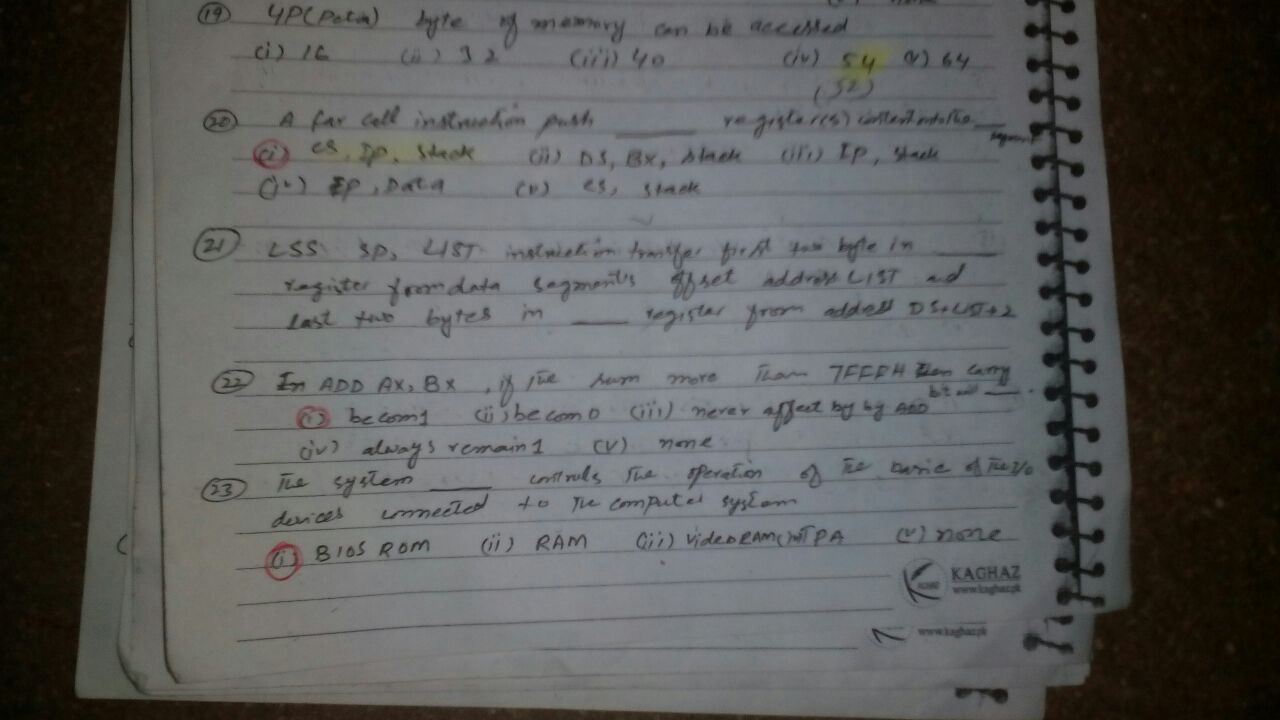 (19) 4P(Peta) byte of memory can be accessed
(i) 16 (ii) 32 (iii) 40 (iv) 54 (v) 64
(52)
(20) A far call instruction push ______ register(s) content into the ___
segment
(i) CS, IP, Stack (ii) DS, BX, Stack (iii) IP, Stack
(iv) IP, Data (v) CS, Stack
(21) LSS SP, LIST instruction transfer first two byte in ____
register from data segment's offset address LIST and
last two bytes in ____ register from addess DS+LIST+2
(22) In ADD AX, BX, if the sum more than 7FFFH then carry
bit will ___.
(i) becom 1 (ii) becom 0 (iii) never affect by by ADD
(iv) always remain 1 (v) none
(23) The system ____ controls the operation of the basic of the I/O
devices connected to the computer system
(i) BIOS ROM (ii) RAM (iii) Video RAM (iv) TPA (v) none
KAGHAZ
www.kaghaz.pk
www.kaghaz.pk